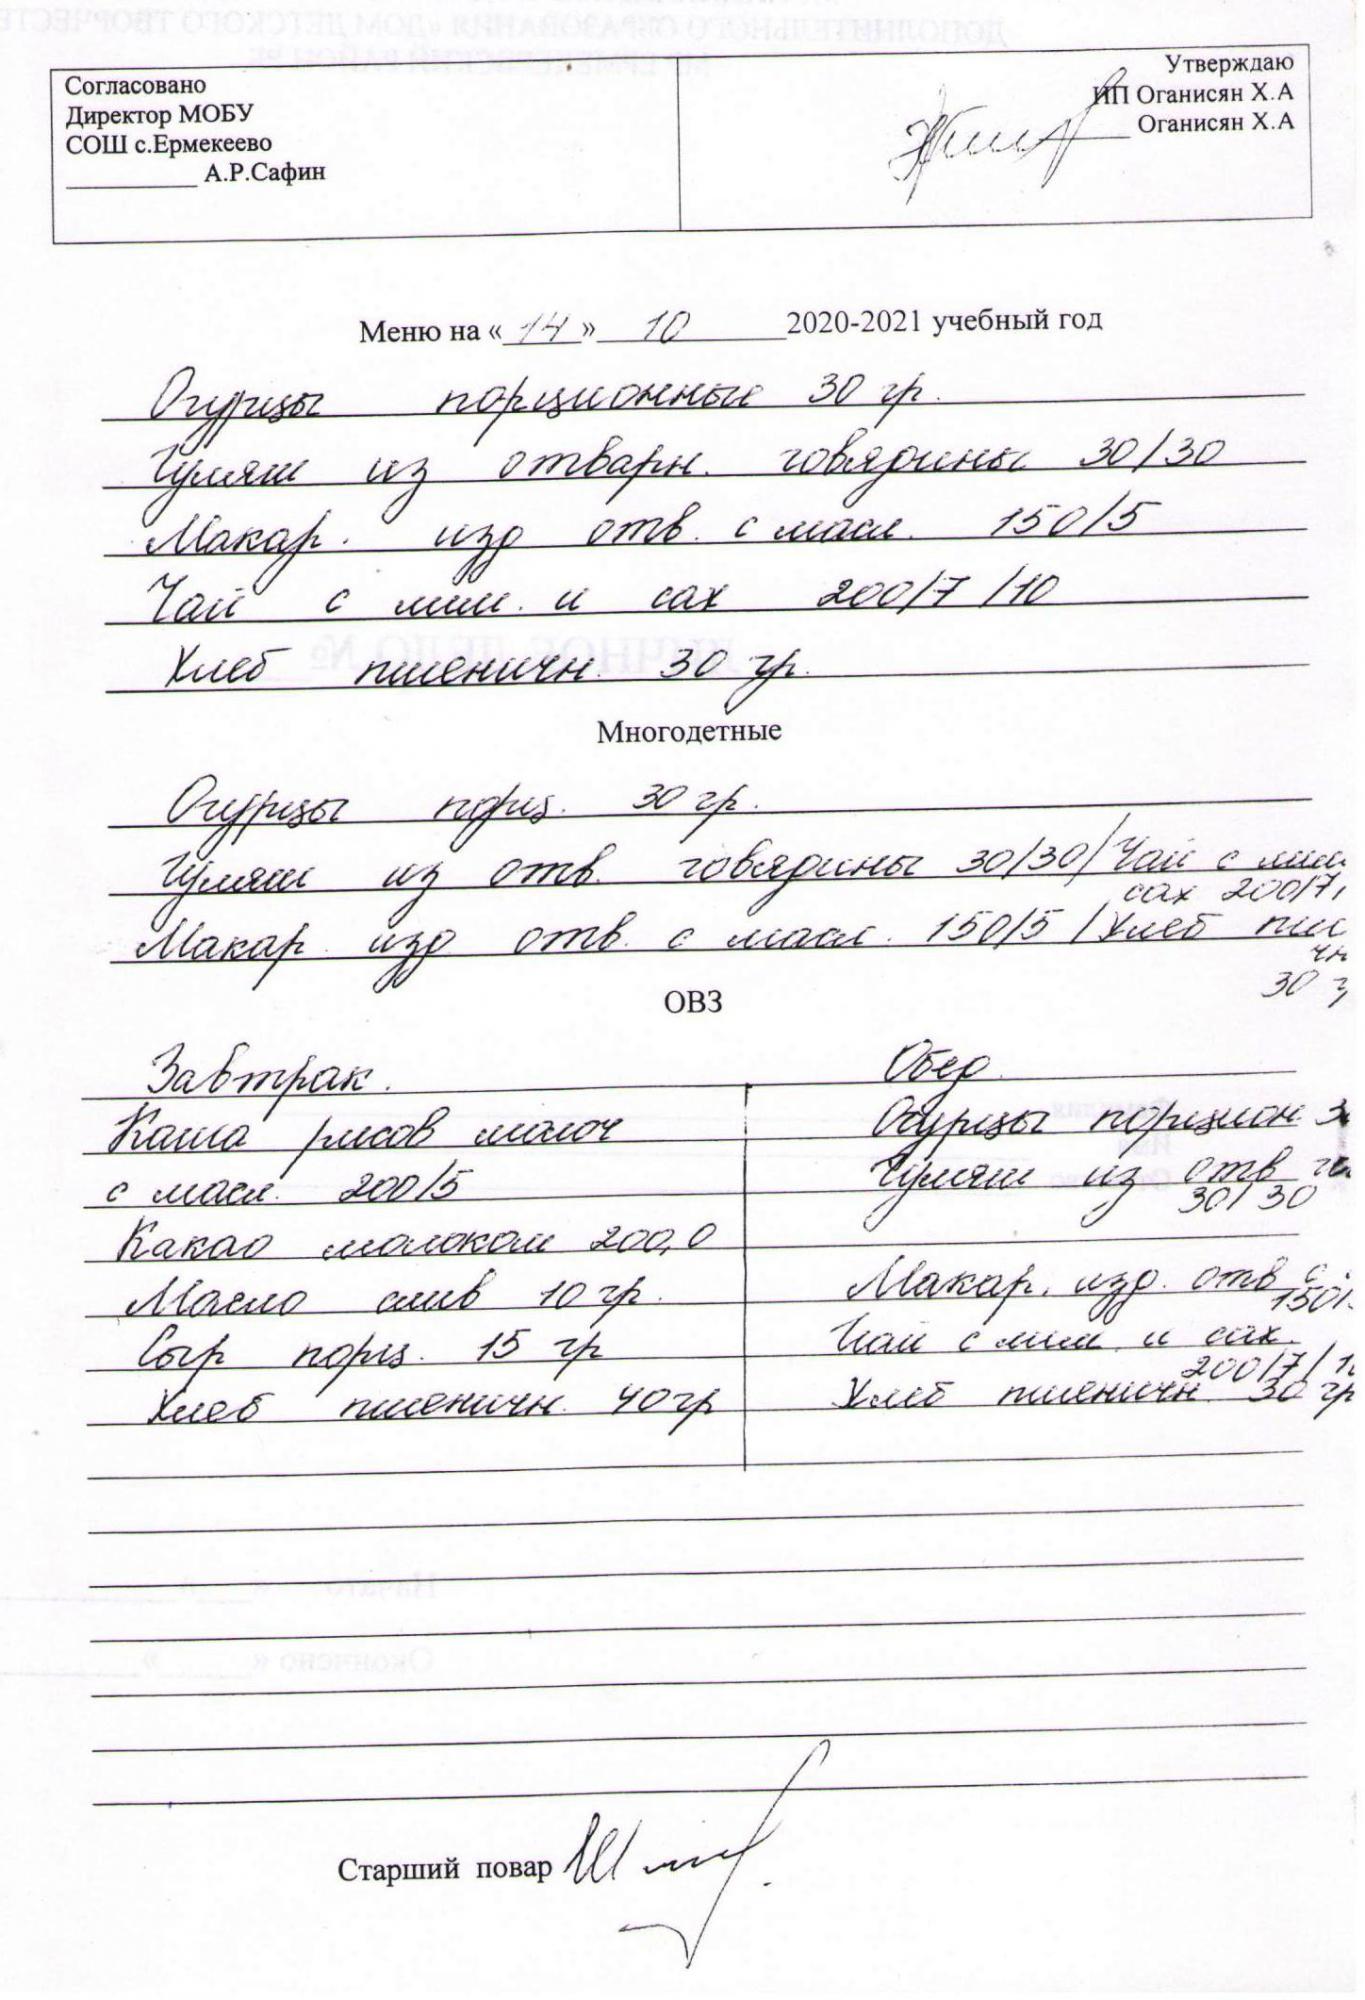 Согласовано
Директор МОБУ
СОШ с.Ермекеево
__________ А.Р.Сафин
Утверждаю
ИП Оганисян Х.А
Оганисян Х.А
Меню на «14» 10 2020-2021 учебный год
Огурцы порционные 30 гр.
Гуляш из отварн. говядины 30/30
Макар. изд отв. с масл. 150/5
Чай с лим. и сах 200/7/10
Хлеб пшеничн. 30 гр.
Многодетные
Огурцы порц. 30 гр.
Гуляш из отв. говядины 30/30/ Чай с лим
сах 200/7/
Макар. изд отв. с масл. 150/5 / Хлеб пш
чн
30 г
ОВЗ
Завтрак.
Каша рисов молоч
с масл. 200/5
Какао молоком 200,0
Масло слив 10 гр.
Сыр порц. 15 гр
Хлеб пшеничн. 40 гр
Обед.
Огурцы порцион 3
Гуляш из отв го
30/30
Макар. изд. отв с
150/
Чай с лим. и сах.
200/7/10
Хлеб пшеничн. 30 гр
Старший повар